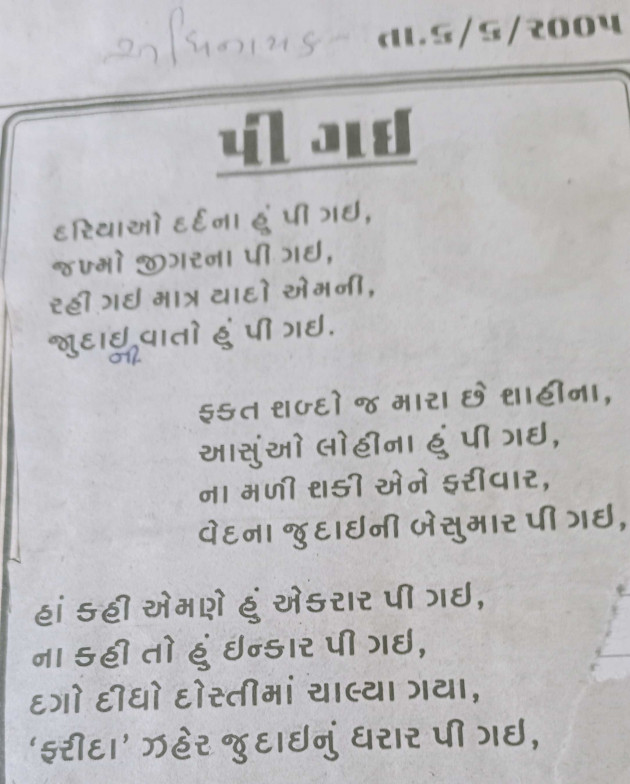 અધિનાયક - તા.૬/૬/૨૦૦૫
પી ગઇ
દરિયાઓ દર્દના હું પી ગઇ,
જખ્મો જીગરના પી ગઇ,
રહી ગઇ માત્ર યાદો એમની,
જુદાઇની વાતો હું પી ગઇ.
ફક્ત શબ્દો જ મારા છે શાહીના,
આસુંઓ લોહીના હું પી ગઇ,
ના મળી શકી એને ફરીવાર,
વેદના જુદાઇની બેસુમાર પી ગઇ,
હાં કહી એમણે હું એકરાર પી ગઇ,
ના કહી તો હું ઇન્કાર પી ગઇ,
દગો દીધો દોસ્તીમાં ચાલ્યા ગયા,
‘ફરીદા’ ઝહેર જુદાઇનું ધરાર પી ગઇ,